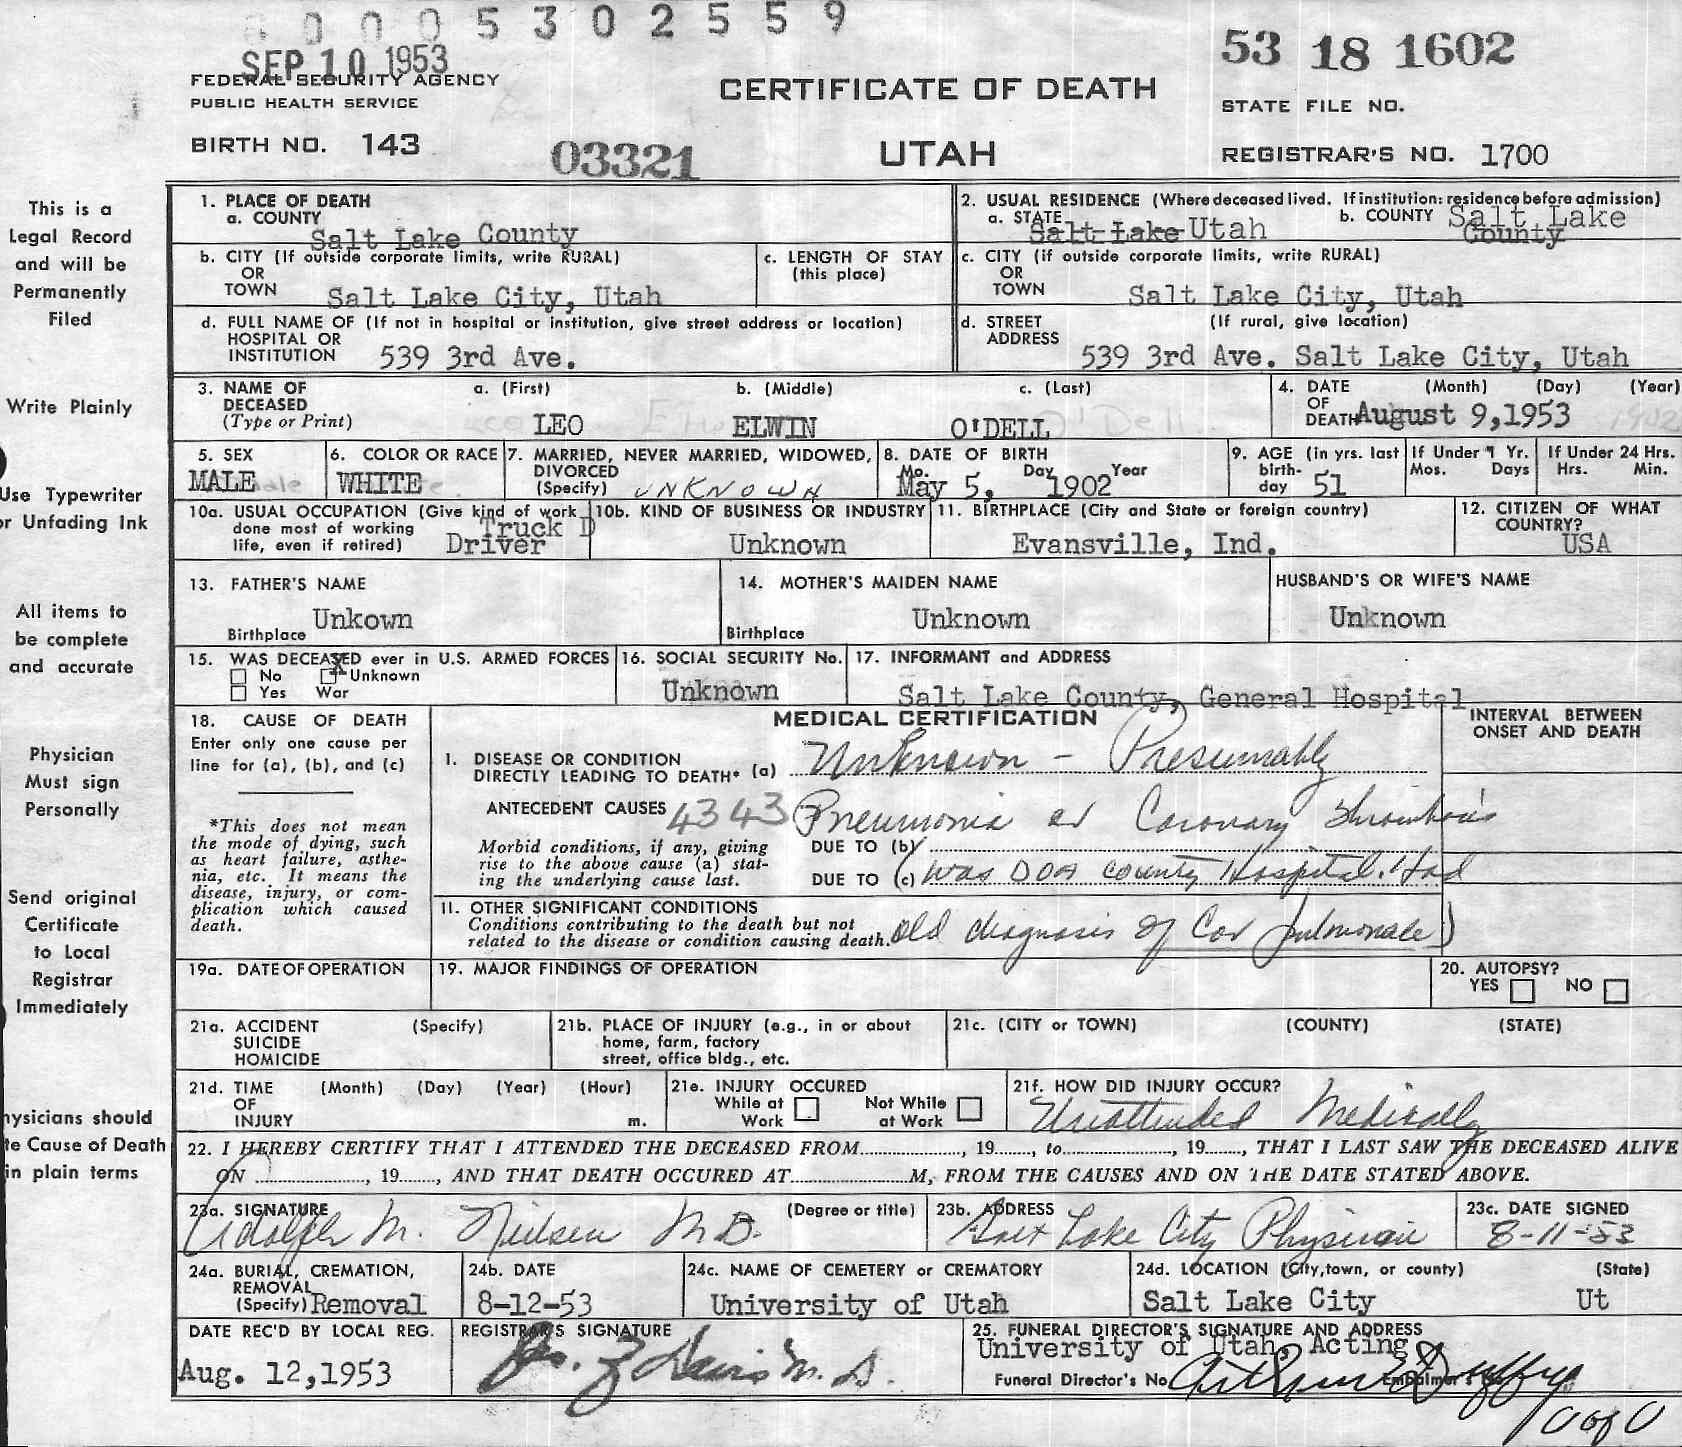 0 0 0 5 3 0 2 5 5 9
SEP 10 1953
53 18 1602
FEDERAL SECURITY AGENCY
PUBLIC HEALTH SERVICE
CERTIFICATE OF DEATH
STATE FILE NO.
BIRTH NO. 143
03321
UTAH
REGISTRAR'S NO. 1700
This is a
Legal Record
and will be
Permanently
Filed
Write Plainly
Use Typewriter
or Unfading Ink
All items to
be complete
and accurate
Physician
Must sign
Personally
Send original
Certificate
to Local
Registrar
Immediately
hysicians should
te Cause of Death
in plain terms
1. PLACE OF DEATH
a. COUNTY
Salt Lake County
2. USUAL RESIDENCE (Where deceased lived. If institution: residence before admission)
a. STATE Salt Lake Utah
b. COUNTY Salt Lake
County
b. CITY (If outside corporate limits, write RURAL)
OR
TOWN Salt Lake City, Utah
c. LENGTH OF STAY
(this place)
c. CITY (if outside corporate limits, write RURAL)
OR
TOWN Salt Lake City, Utah
d. FULL NAME OF (If not in hospital or institution, give street address or location)
HOSPITAL OR
INSTITUTION 539 3rd Ave.
d. STREET (If rural, give location)
ADDRESS
539 3rd Ave. Salt Lake City, Utah
3. NAME OF a. (First) b. (Middle) c. (Last)
DECEASED
(Type or Print) LEO ELWIN O'DELL
4. DATE (Month) (Day) (Year)
OF
DEATH August 9,1953 1902
5. SEX
MALE
6. COLOR OR RACE
WHITE
7. MARRIED, NEVER MARRIED, WIDOWED,
DIVORCED
(Specify) UNKNOWN
8. DATE OF BIRTH
Mo. Day Year
May 5, 1902
9. AGE (in yrs. last
birth-
day 51
If Under 1 Yr.
Mos. Days
If Under 24 Hrs.
Hrs. Min.
10a. USUAL OCCUPATION (Give kind of work
done most of working Truck D
life, even if retired) Driver
10b. KIND OF BUSINESS OR INDUSTRY
Unknown
11. BIRTHPLACE (City and State or foreign country)
Evansville, Ind.
12. CITIZEN OF WHAT
COUNTRY?
USA
13. FATHER'S NAME
Unkown
Birthplace
14. MOTHER'S MAIDEN NAME
Unknown
Birthplace
HUSBAND'S OR WIFE'S NAME
Unknown
15. WAS DECEASED ever in U.S. ARMED FORCES
No X Unknown
Yes War
16. SOCIAL SECURITY No.
Unknown
17. INFORMANT and ADDRESS
Salt Lake County, General Hospital
18. CAUSE OF DEATH
Enter only one cause per
line for (a), (b), and (c)
*This does not mean
the mode of dying, such
as heart failure, asthe-
nia, etc. It means the
disease, injury, or com-
plication which caused
death.
MEDICAL CERTIFICATION
INTERVAL BETWEEN
ONSET AND DEATH
I. DISEASE OR CONDITION
DIRECTLY LEADING TO DEATH* (a) Unknown - Presumably
ANTECEDENT CAUSES 4343 Pneumonia or Coronary Thrombosis
Morbid conditions, if any, giving
rise to the above cause (a) stat-
ing the underlying cause last.
DUE TO (b)
DUE TO (c) (Was DOA County Hospital. Had
II. OTHER SIGNIFICANT CONDITIONS
Conditions contributing to the death but not
related to the disease or condition causing death. old diagnosis of Cor pulmonale)
19a. DATE OF OPERATION
19. MAJOR FINDINGS OF OPERATION
20. AUTOPSY?
YES NO
21a. ACCIDENT (Specify)
SUICIDE
HOMICIDE
21b. PLACE OF INJURY (e.g., in or about
home, farm, factory
street, office bldg., etc.
21c. (CITY or TOWN) (COUNTY) (STATE)
21d. TIME (Month) (Day) (Year) (Hour)
OF
INJURY m.
21e. INJURY OCCURED
While at Work
Not While at Work
21f. HOW DID INJURY OCCUR?
Unattended Medically
22. I HEREBY CERTIFY THAT I ATTENDED THE DECEASED FROM............, 19......, to............, 19......, THAT I LAST SAW THE DECEASED ALIVE
ON ............, 19......, AND THAT DEATH OCCURED AT............M, FROM THE CAUSES AND ON THE DATE STATED ABOVE.
23a. SIGNATURE (Degree or title)
Adolph M. Nielsen M.D.
23b. ADDRESS
Salt Lake City Physician
23c. DATE SIGNED
8-11-53
24a. BURIAL, CREMATION,
REMOVAL
(Specify) Removal
24b. DATE
8-12-53
24c. NAME OF CEMETERY or CREMATORY
University of Utah
24d. LOCATION (City, town, or county) (State)
Salt Lake City Ut
DATE REC'D BY LOCAL REG.
Aug. 12,1953
REGISTRAR'S SIGNATURE
M.D.
25. FUNERAL DIRECTOR'S SIGNATURE AND ADDRESS
University of Utah, Acting
Funeral Director's No. Embalmer's
U of U